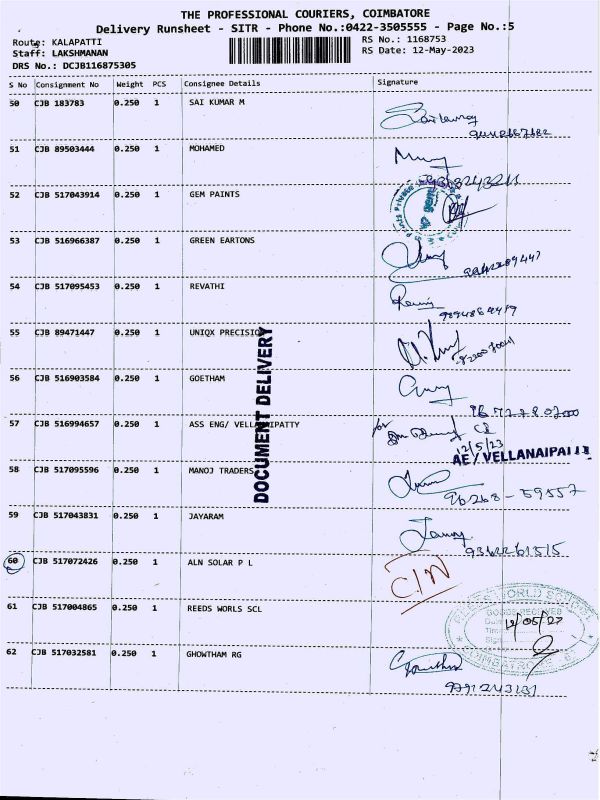 THE PROFESSIONAL COURIERS, COIMBATORE
Delivery Runsheet - SITR - Phone No.:0422-3505555 - Page No.:5
Route: KALAPATTI
RS No.: 1168753
Staff: LAKSHMANAN
RS Date: 12-May-2023
DRS No.: DCJB116875305
S No Consignment No Weight PCS Consignee Details Signature
50 CJB 183783 0.250 1 SAI KUMAR M
51 CJB 89503444 0.250 1 MOHAMED
52 CJB 517043914 0.250 1 GEM PAINTS
53 CJB 516966387 0.250 1 GREEN EARTONS
54 CJB 517095453 0.250 1 REVATHI
55 CJB 89471447 0.250 1 UNIQX PRECISION
56 CJB 516903584 0.250 1 GOETHAM
57 CJB 516994657 0.250 1 ASS ENG/ VELLANAIPATTY
12/5/23
AE / VELLANAIPATTI
58 CJB 517095596 0.250 1 MANOJ TRADERS
96268-59557
59 CJB 517043831 0.250 1 JAYARAM
60 CJB 517072426 0.250 1 ALN SOLAR P L
C/N
61 CJB 517004865 0.250 1 REEDS WORLS SCL
GOODS RECEIVED
62 CJB 517032581 0.250 1 GHOWTHAM RG
DOCUMENT DELIVERY